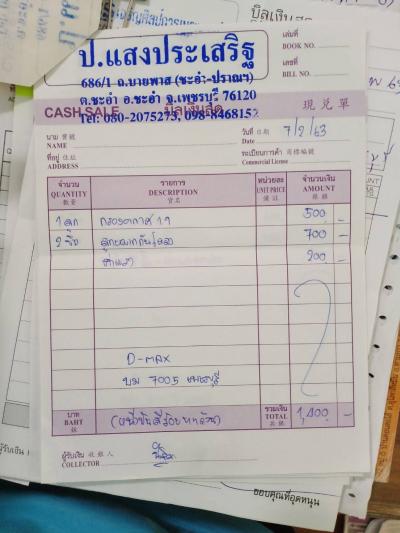 ป.แสงประเสริฐ
686/1 ถ.บายพาส (ชะอำ-ปราณฯ)
ต.ชะอำ อ.ชะอำ จ.เพชรบุรี 76120
Tel: 080-2075273, 098-8468152
เล่มที่
BOOK NO.
เลขที่
BILL NO.
CASH SALE บิลเงินสด 現兑單
นาม 寶號
NAME
วันที่ 日期 7/2/63
Date
ที่อยู่ 住址
ADDRESS
ทะเบียนการค้า 商標編號
Commercial License
จำนวน รายการ หน่วยละ จำนวนเงิน
QUANTITY DESCRIPTION UNIT PRICE AMOUNT
數量 貨名 備註 銀額
1 ลูก กรองอากาศ 500 -
2 ชิ้น 700 -
ค่าแรง 200 -
D-MAX
บม 7005 เพชรบุรี
บาท รวมเงิน
BAHT (หนึ่งพันสี่ร้อยบาทถ้วน) TOTAL 1,400 -
銖 共銀
ผู้รับเงิน 收銀人
COLLECTOR
ขอบคุณที่อุดหนุน